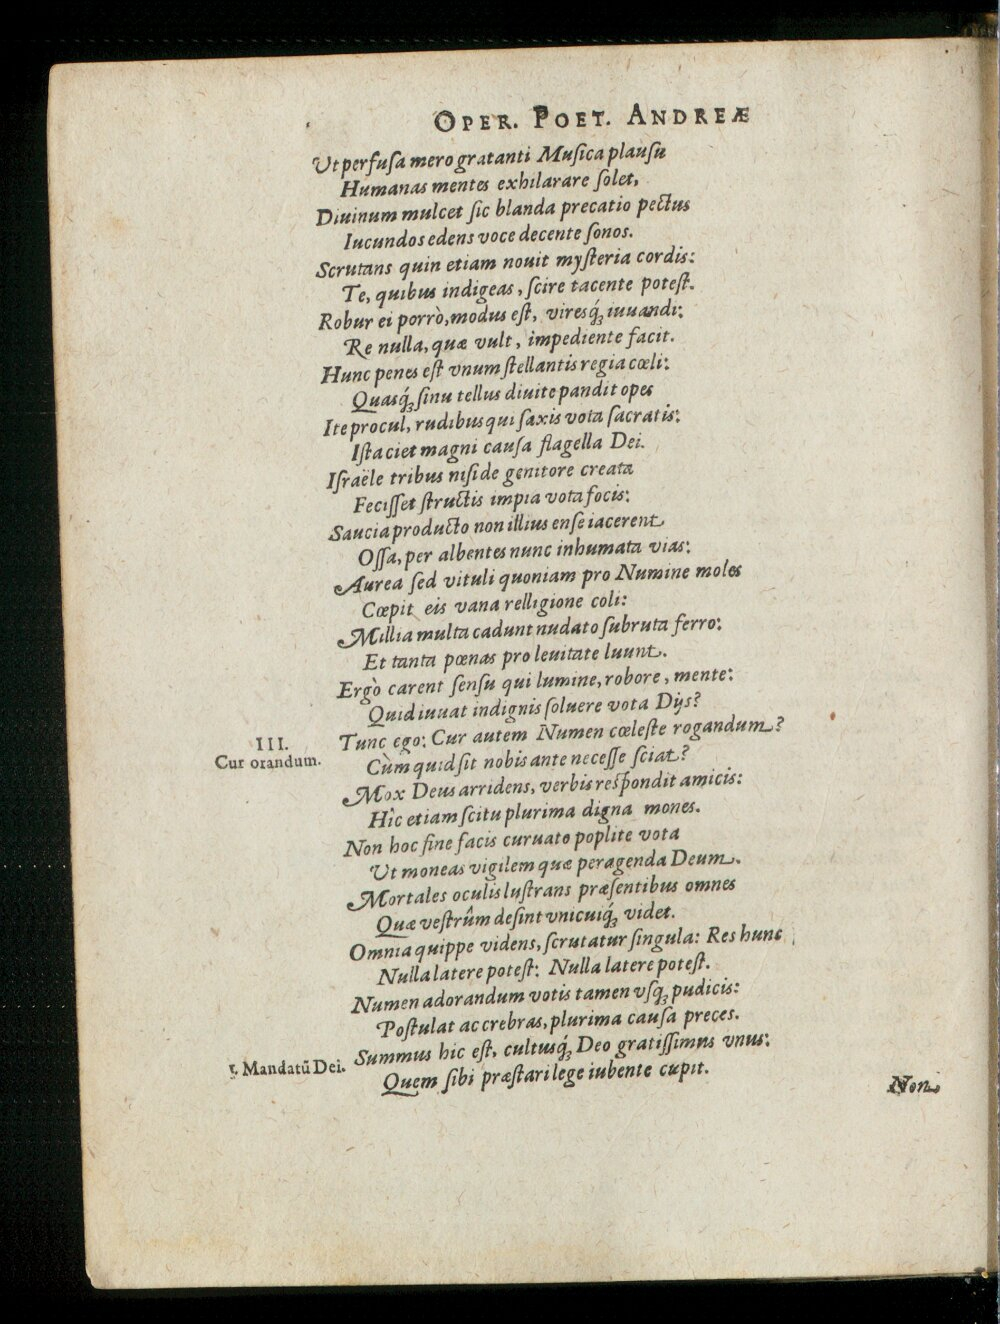 OPER. POET. ANDREÆ
Vt perfusa mero gratanti Musica plausu
Humanas mentes exhilarare solet,
Diuinum mulcet sic blanda precatio pectus
Iucundos edens voce decente sonos.
Scrutans quin etiam nouit mysteria cordis:
Te, quibus indigeas, scire tacente potest.
Robur ei porrò, modus est, viresq́; iuuandi:
Re nulla, quæ vult, impediente facit.
Hunc penes est vnum stellantis regia cœli:
Quasq́; sinu tellus diuite pandit opes
Ite procul, rudibus qui saxis vota sacratis:
Ista ciet magni causa flagella Dei.
Israële tribus nisi de genitore creata
Fecisset structis impia vota focis:
Saucia producto non illius ense iacerent
Ossa, per albentes nunc inhumata vias:
Aurea sed vituli quoniam pro Numine moles
Cœpit eis vana relligione coli:
Millia multa cadunt nudato subruta ferro:
Et tanta pœnas pro leuitate luunt.
Ergò carent sensu qui lumine, robore, mente:
Quid iuuat indignis soluere vota Dijs?
III.
Cur orandum.
Tunc ego: Cur autem Numen cœleste rogandum?
Cùm quid sit nobis ante necesse sciat?
Mox Deus arridens, verbis respondit amicis:
Hîc etiam scitu plurima digna mones.
Non hoc fine facis curuato poplite vota
Vt moneas vigilem quæ peragenda Deum.
Mortales oculis lustrans præsentibus omnes
Quæ vestrûm desint vnicuiq́; videt.
Omnia quippe videns, scrutatur singula: Res hunc
Nulla latere potest: Nulla latere potest.
Numen adorandum votis tamen vsq́; pudicis:
Postulat ac crebras, plurima causa preces.
1. Mandatū Dei.
Summus hic est, cultusq́; Deo gratissimus vnus:
Quem sibi præstari lege iubente cupit.
Non